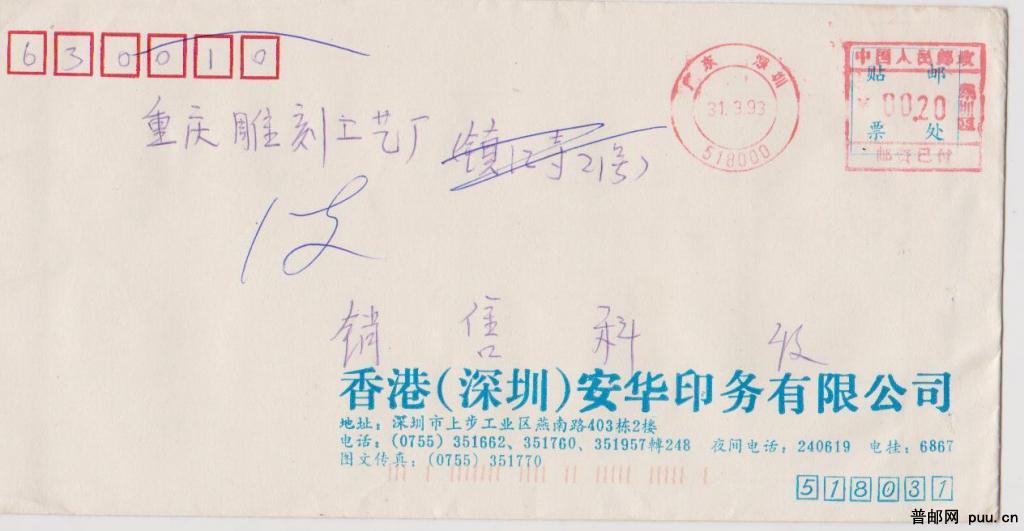 630010
广东 深圳
31.3.93
518000
中国人民邮政
贴 邮
¥ 00.20
票 处
邮资已付
重庆雕刻工艺厂 镇江寺21号
销售科 收
香港(深圳)安华印务有限公司
地址：深圳市上步工业区燕南路403栋2楼
电话：(0755) 351662、351760、351957轉248 夜间电话：240619 电挂：6867
图文传真：(0755) 351770
518031
普邮网 puu.cn